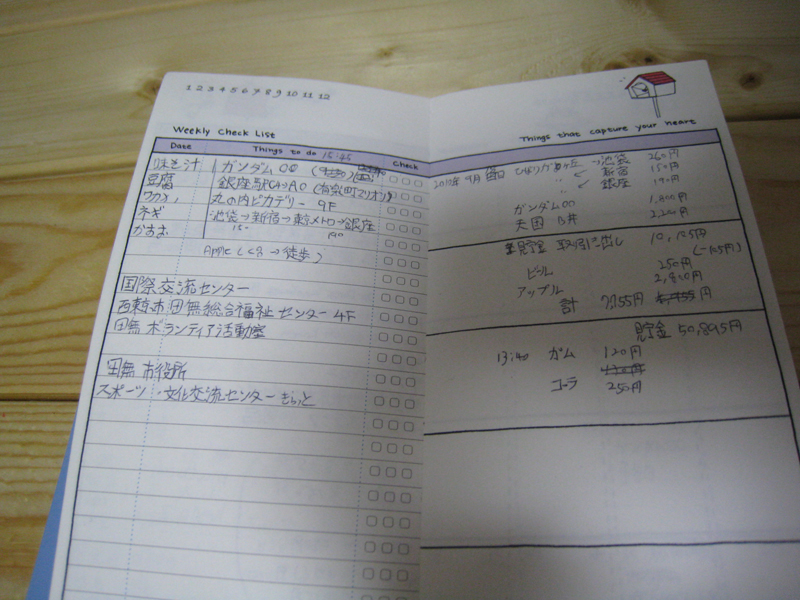 1 2 3 4 5 6 7 8 9 10 11 12
Weekly Check List
Date Things to do 15:45 Check
味そ汁 ガンダム00
豆腐 銀座駅 (有楽町マリオン)
丸の内ピカデリー 9F
ネギ 池袋→新宿→東京メトロ→銀座
かつお 190
Apple ( →徒歩)
国際交流センター
西東京市田無総合福祉センター 4F
田無ボランティア活動室
田無市役所
スポーツ・文化交流センターきらっと
Things that capture your heart
2010年9月 ひばりヶ丘→池袋 260円
〃 新宿 150円
〃 銀座 190円
ガンダム00 1,800円
天国 B丼 2,200円
貯金 取引き出し 10,105円
(-105円)
ビール 250円
アップル 2,800円
計 円
貯金 50,895円
13:40 ガム 120円
コーラ 250円